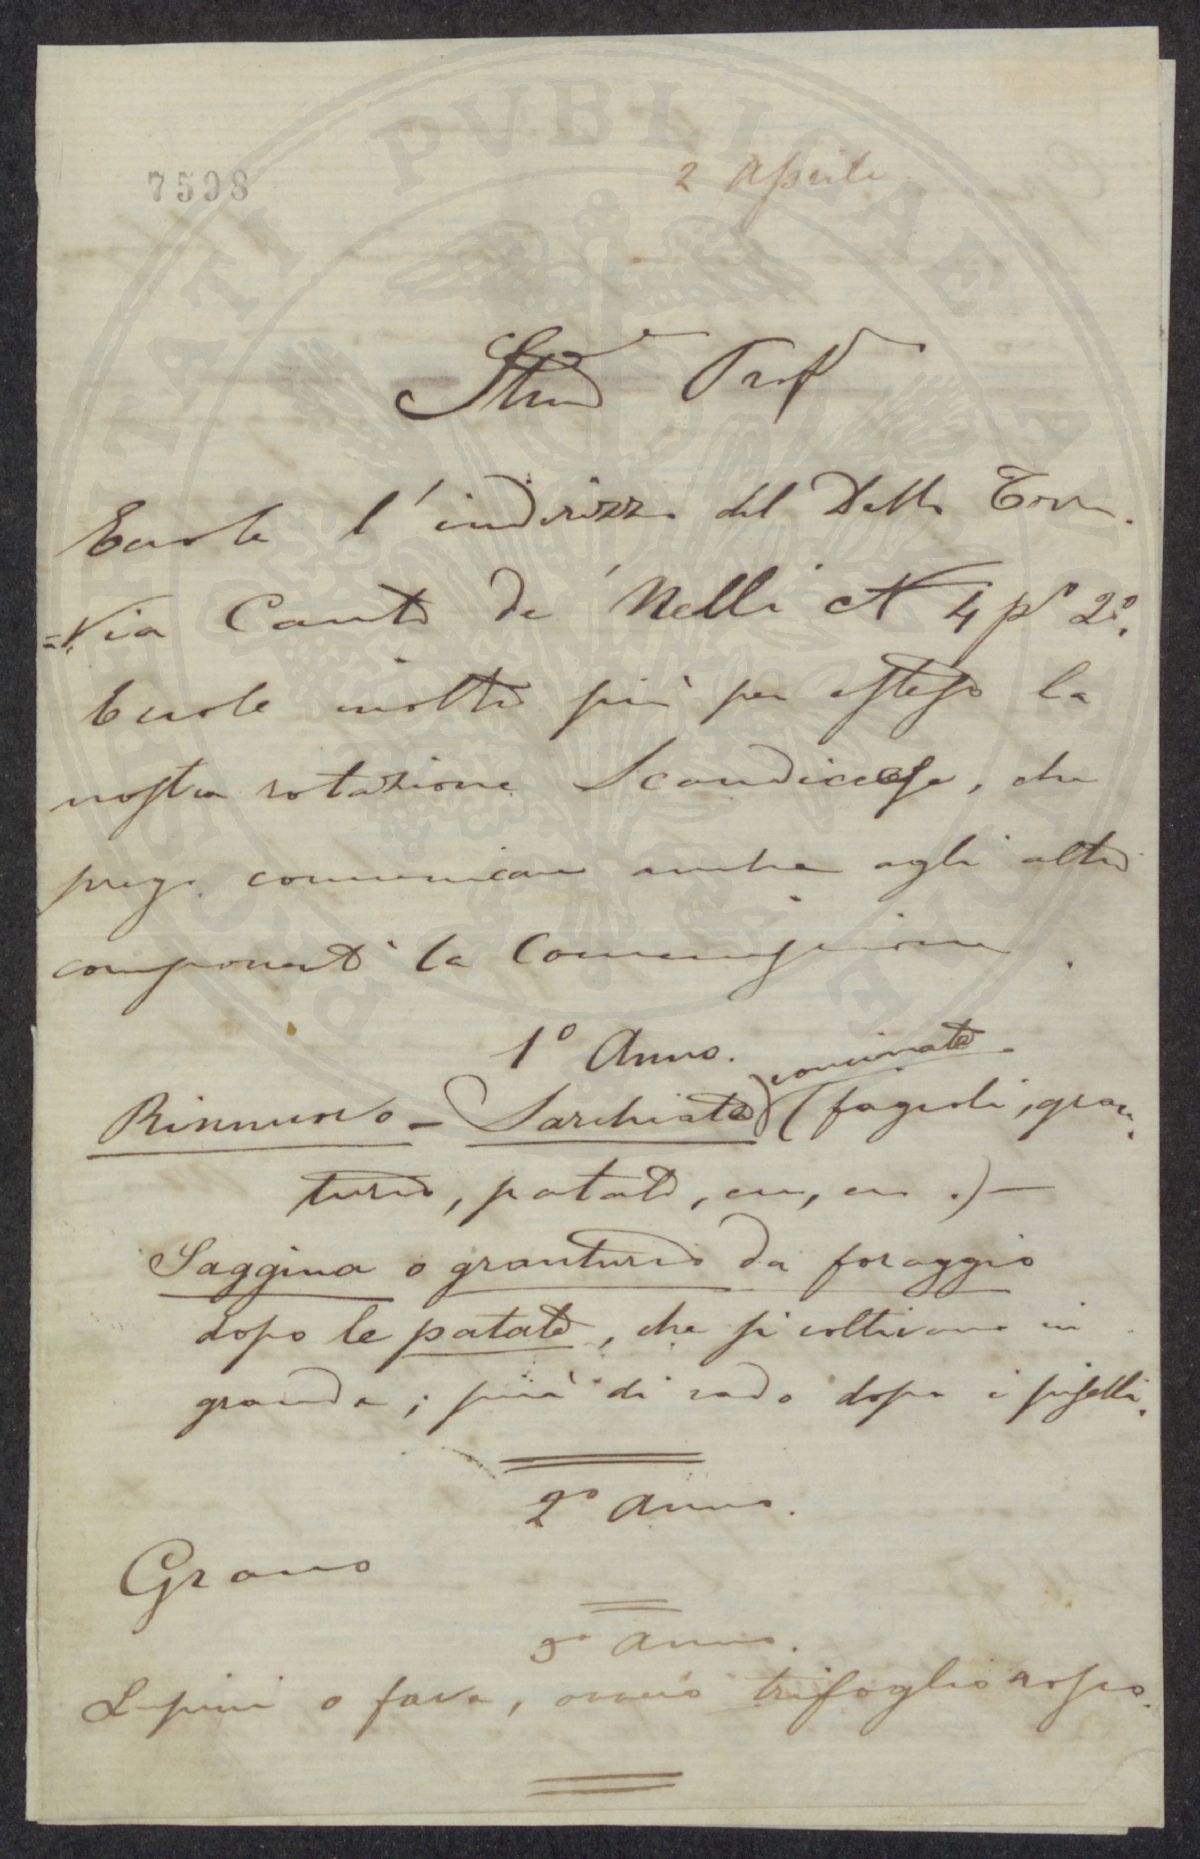 7598
2 Aprile
Stimo Prof
Eccole l'indirizzo del Dotto Torre.
=Via Canto de' Nelli N 4 po 2o.
Eccole inoltre più per esteso la
nostra rotazione Scandiccese, che
prego comunicare anche agli altri
componenti la Commissione.
1o Anno.
concimate
Rinnuovo - Sarchiate (fagioli, gran-
turco, patate, ecc, ecc.)—
Saggina o granturco da foraggio
dopo le patate, che si coltivano in
grande; più di rado dopo i piselli.
2o Anno.
Grano
3o Anno.
Lupini o fava, ovvero trifoglio rosso.
PUBLICAE